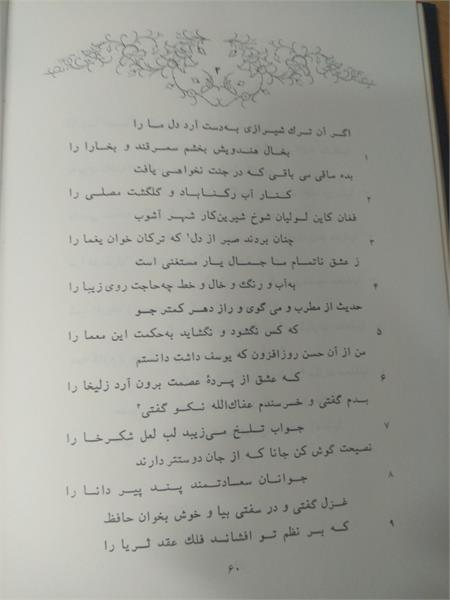 ۳
اگر آن ترك شیرازی به‌دست آرد دل ما را
۱ بخال هندویش بخشم سمرقند و بخارا را
بده ساقی می باقی که در جنت نخواهی یافت
۲ کنار آب رکناباد و گلگشت مصلی را
فغان کاین لولیان شوخ شیرین‌کار شهر آشوب
۳ چنان بردند صبر از دل¹ که ترکان خوان یغما را
ز عشق ناتمام ما جمال یار مستغنی است
۴ به‌آب و رنگ و خال و خط چه‌حاجت روی زیبا را
حدیث از مطرب و می گوی و راز دهر کمتر جو
۵ که کس نگشود و نگشاید به‌حکمت این معما را
من از آن حسن روزافزون که یوسف داشت دانستم
۶ که عشق از پردهٔ عصمت برون آرد زلیخا را
بدم گفتی و خرسندم عفاك‌الله نکو گفتی²
۷ جواب تلخ می‌زیبد لب لعل شکرخا را
نصیحت گوش کن جانا که از جان دوستتر دارند
۸ جوانان سعادتمند پند پیر دانا را
غزل گفتی و در سفتی بیا و خوش بخوان حافظ
۹ که بر نظم تو افشاند فلك عقد ثریا را
۶۰